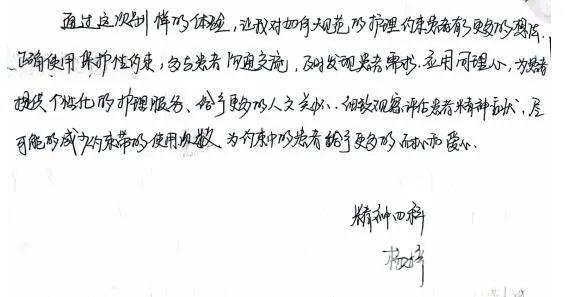 通过这次别样的体验,让我对如何规范的护理约束患者有了更多的想法.
正确使用保护性约束,多与患者沟通交流,及时发现患者需求.应用同理心,为患者
提供个性化的护理服务、给予更多的人文关怀.细致观察评估患者精神症状,尽
可能的减少约束带的使用次数,为约束中的患者给予更多的耐心和爱心.
精神四科
杨